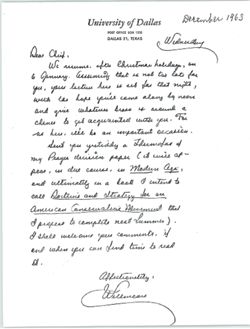 University of Dallas
POST OFFICE BOX 1330
DALLAS 21, TEXAS
December 1963
Wednesday
Dear Chief:
We resume, after Christmas holidays, on
6 January. Assuming that is not too late for
you, your lecture here is set for that night,
with the hope you'll come along by noon
and give whatever boys is around a
chance to get acquainted with you. For
us here it'll be an important occasion.
Sent you yesterday a Thermofax of
my Prayer decision paper (it will ap-
pear, in due course, in Modern Age,
and ultimately in a book I intend to
call Doctrine and Strategy for an
American Conservative Movement that
I propose to complete next summer).
I shall welcome your comments, if
and when you can find time to read
it.
Affectionately,